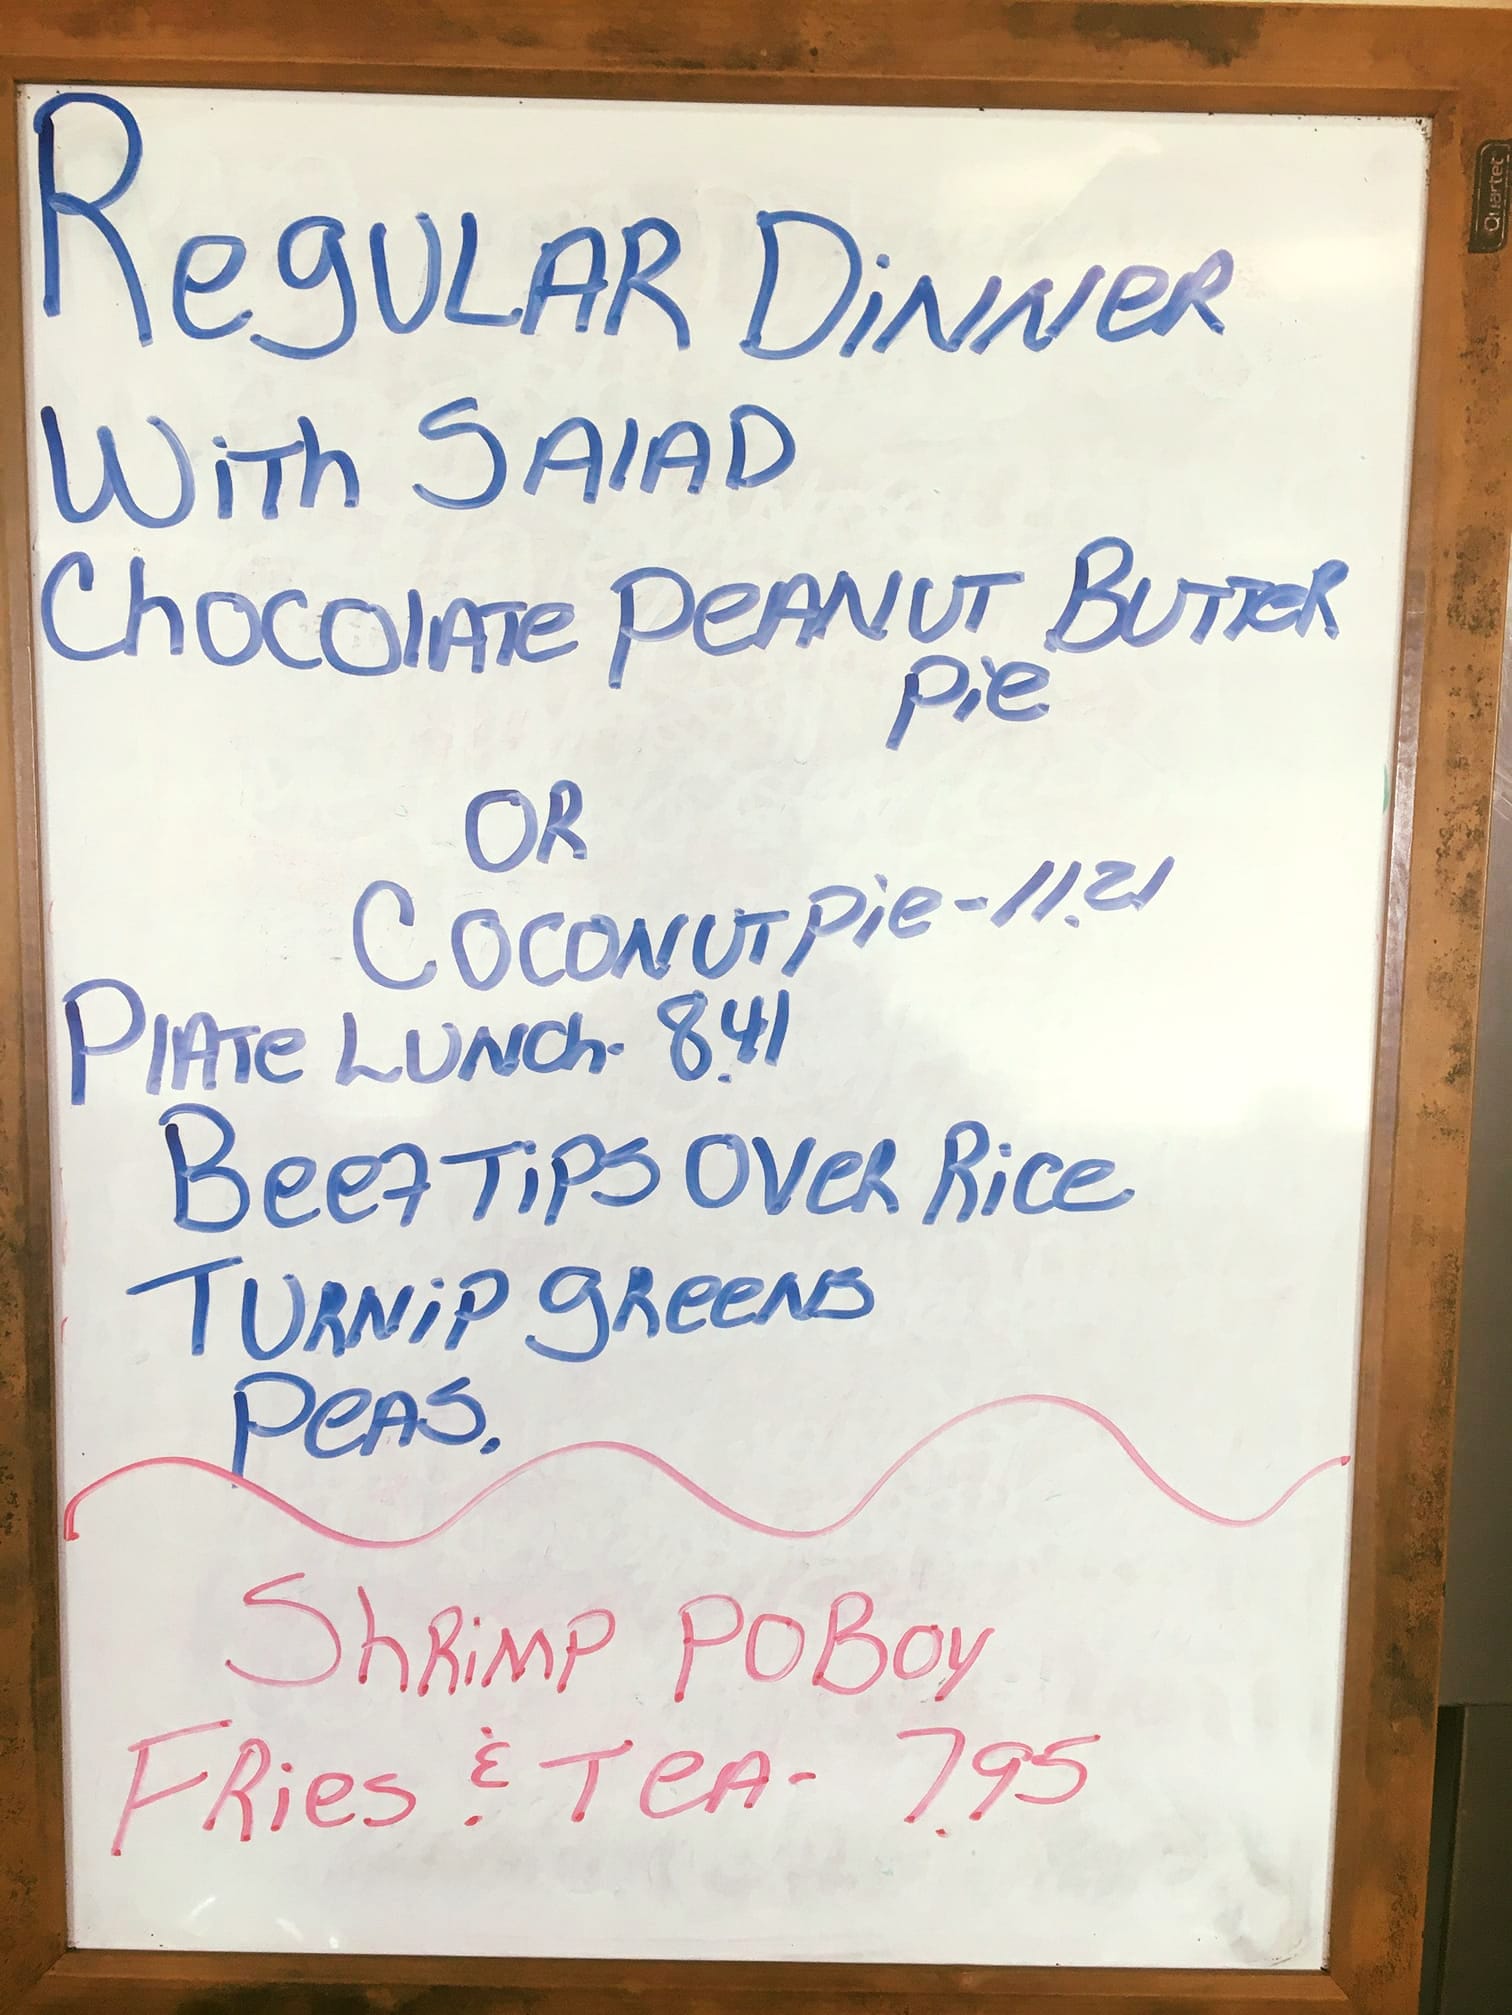 Quartet
RegULAR DiNNeR
With SAlAD
ChocolATe PeANUT BUTTeR
Pie
OR
COCONUT Pie - 11.21
PlATe LUNCh - 8.41
Beef TiPS OVeR Rice
TURNiP gReeNS
PeAS.
ShRiMP POBoy
FRies & TeA - 7.95